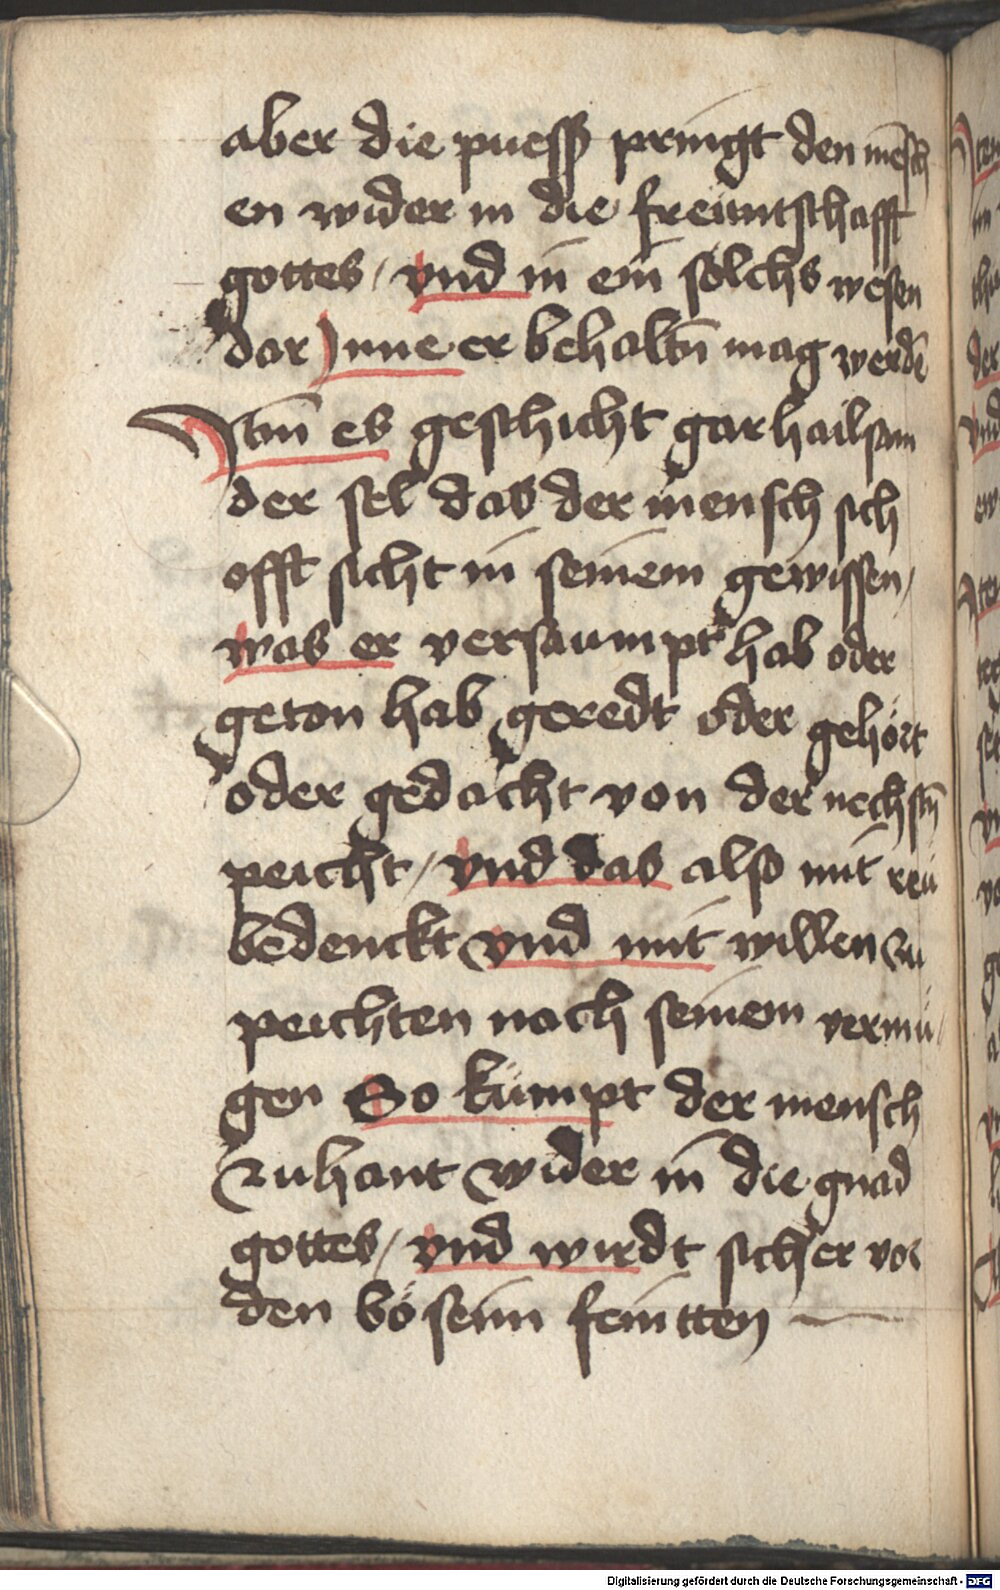 aber die puess pringt den mēsch
en wider in die freüntschafft
gottes / vnd in ein sölchs wesen
dar Inne er behaltn̄ mag werdē
Itm̄ es geschicht gar hailsam
der sel das der mensch sich
offt sicht in seinem gewissen /
was er versaumpt hab oder
geton hab geredt oder gehört
oder gedacht von der nechstn̄
peicht / vnd das also mit reü
bedenckt vnd mit willen zu
peichten nach seinem vermü
gen So kümpt der mensch
zuhant wider in die gnad
gottes / vnd wirdt sicher vor
den bösenn feintten
Digitalisierung gefördert durch die Deutsche Forschungsgemeinschaft - DFG